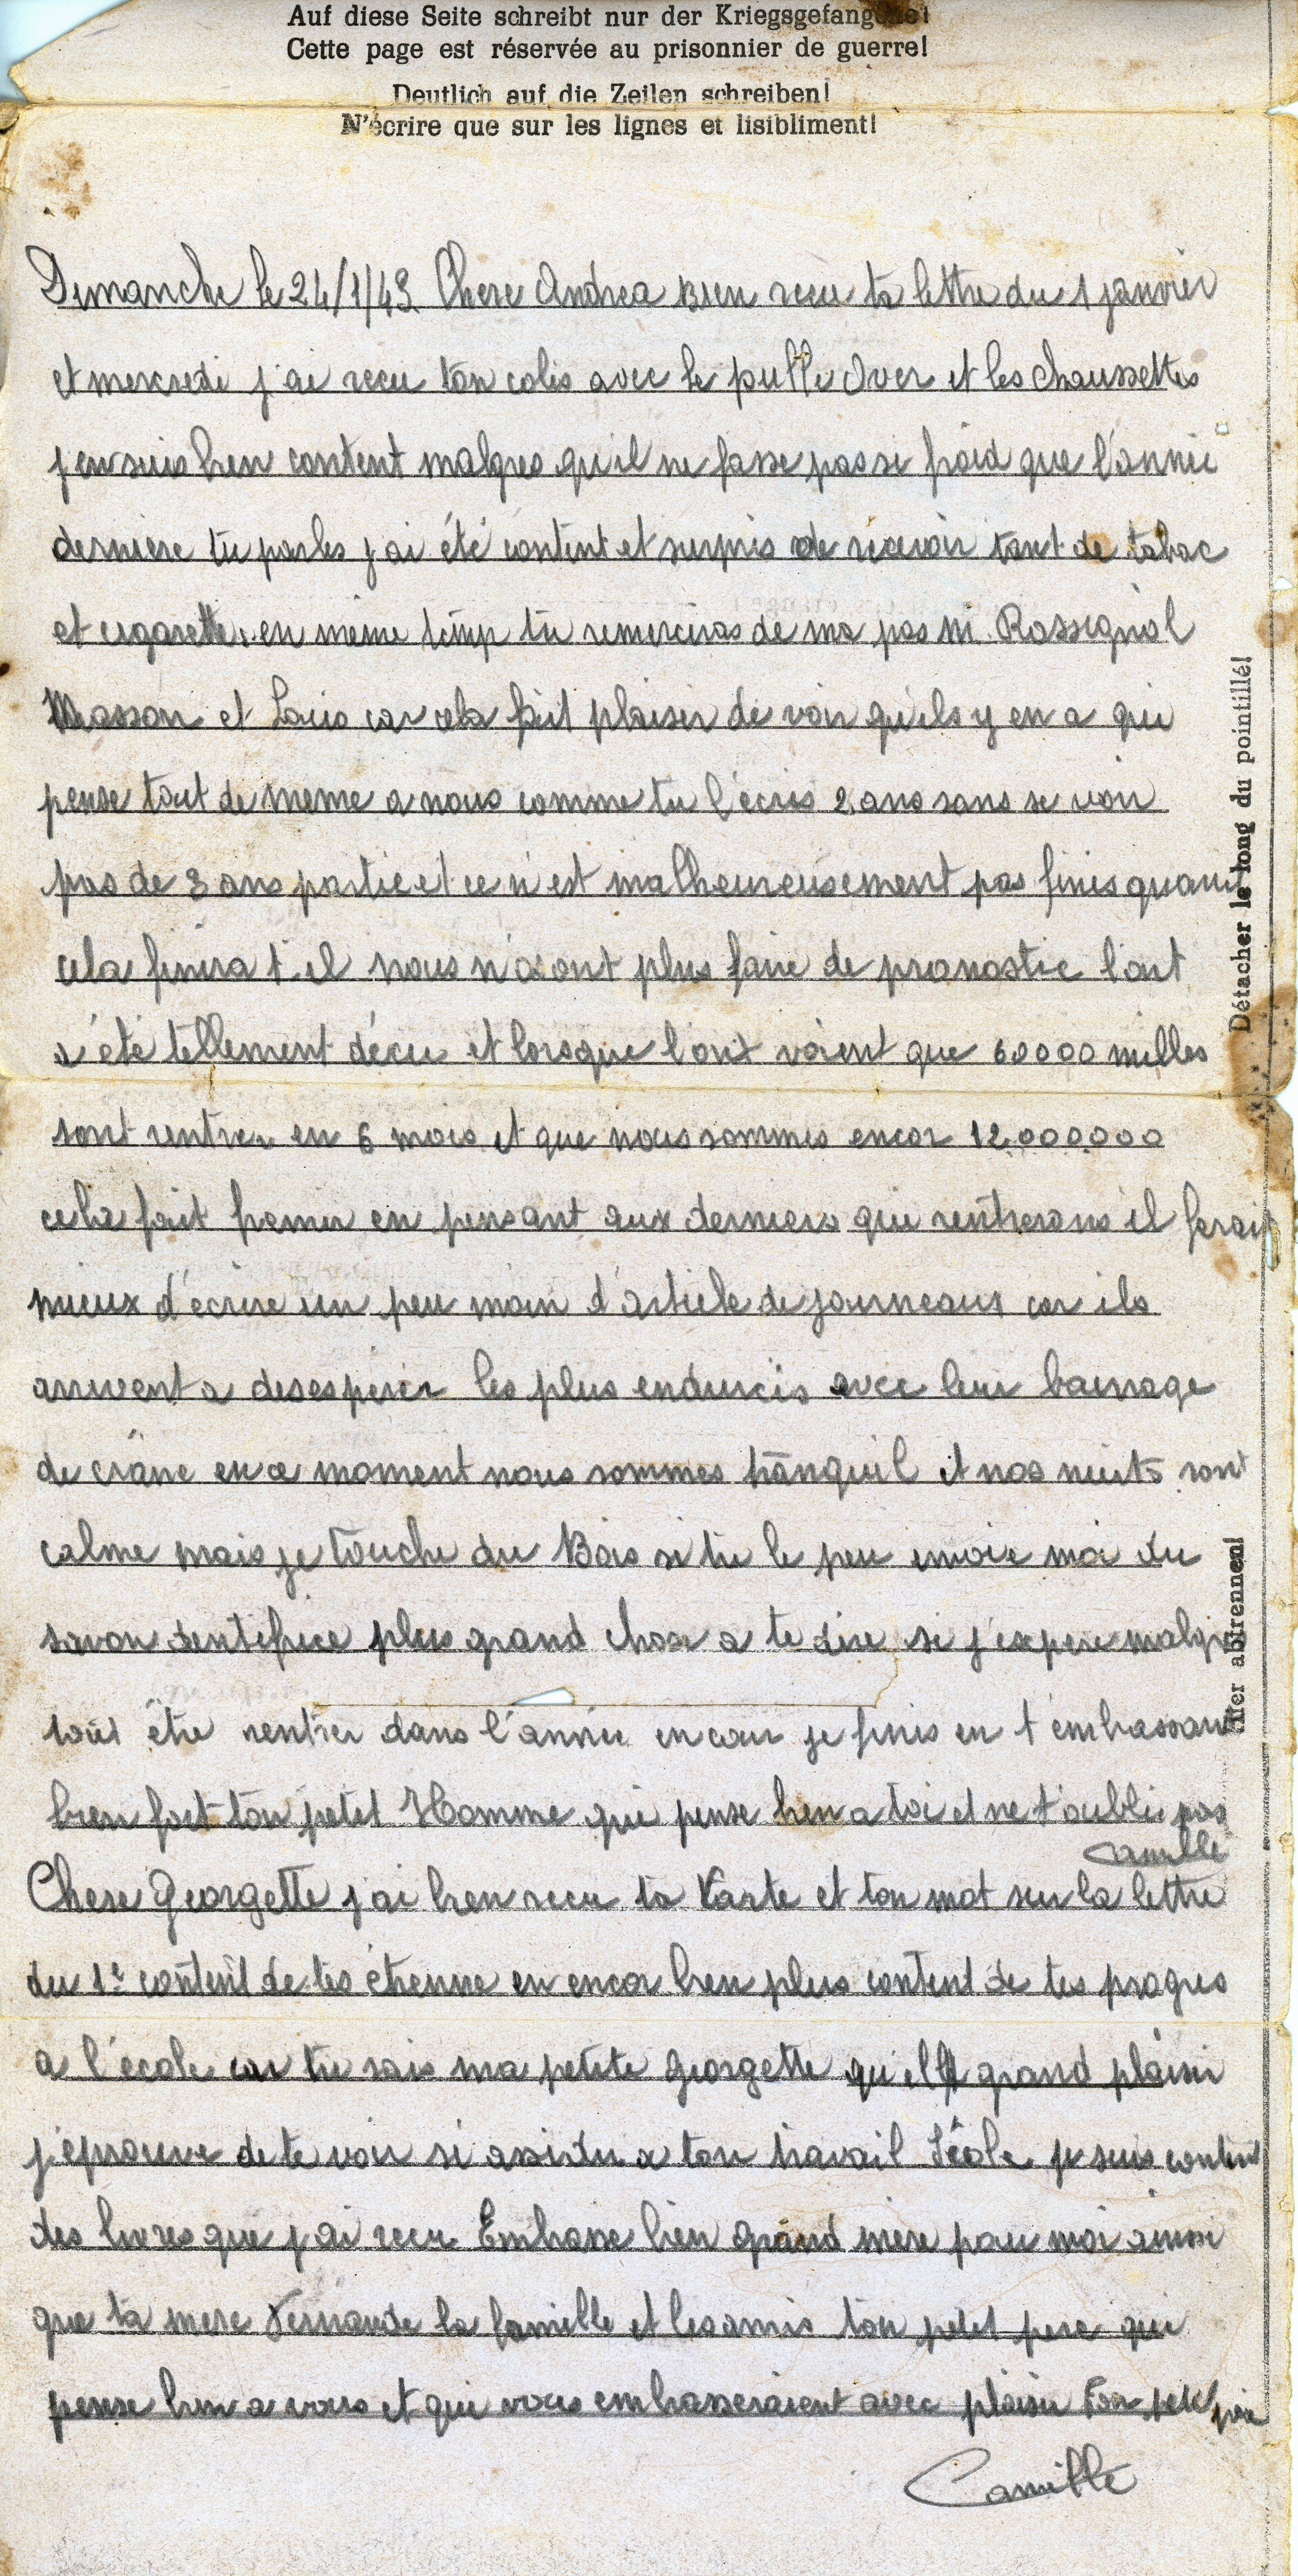 Auf diese Seite schreibt nur der Kriegsgefangene!
Cette page est réservée au prisonnier de guerre!
Deutlich auf die Zeilen schreiben!
N'écrire que sur les lignes et lisibliment!
Dimanche le 24/1/43. Chere Andrea Bien recu ta lettre du 1 janvier
et mercredi j'ai recu ton colis avec le pulle Over et les chaussettes
j'en suis bien content malgres qu'il ne fasse pas si froid que l'année
derniere tu parles j'ai été content et surpris de recevoir tant de tabac
et cigarette, en même temp tu remerciras de ma pas M. Rossignol
Masson et Louis car cela fait plaisir de voir qu'ils y en a qui
pense tout de meme a nous comme tu l'écris 2 ans sans se voir
pas de 3 ans partie et ce n'est malheureusement pas finis quand
cela finira t-il nous n'osont plus faire de pronostic l'ont
a été tellement décu et lorsque l'ont voient que 60000 milles
sont rentrer en 6 mois et que nous sommes encor 12.000000
cela fait fremir en pensant aux derniers qui rentrerons il ferait
mieux d'écrire un peu moin d'article de journeaux car ils
arrivent a desesperer les plus endurcis avec leur bourrage
de crâne en ce moment nous sommes tranquil et nos nuits sont
calme mais je touche du Bois si tu le peu envoie moi du
savon dentifrice plus grand chose a te dire si j'espere malgre
tout être rentrer dans l'année en cour je finis en t'embrassant
bien fort ton petit Homme qui pense bien a toi et ne t'oublie pas
Camille
Chere Georgette j'ai bien recu ta Carte et ton mot sur la lettre
du 1e content de tes étrenne en encor bien plus content de tes progres
a l'école car tu sais ma petite Georgette grand plaisir
j'eprouve de te voir si assidu a ton travail je suis content
des livres que j'ai recu Embrasse bien Grand mere pour moi ainsi
que ta mere Fernande la famille et les amis ton petit pere qui
pense bien a vous et qui vous embrasseraient avec plaisir Ton petit père
Camille
Détacher le long du pointillé!
hier abtrennen!